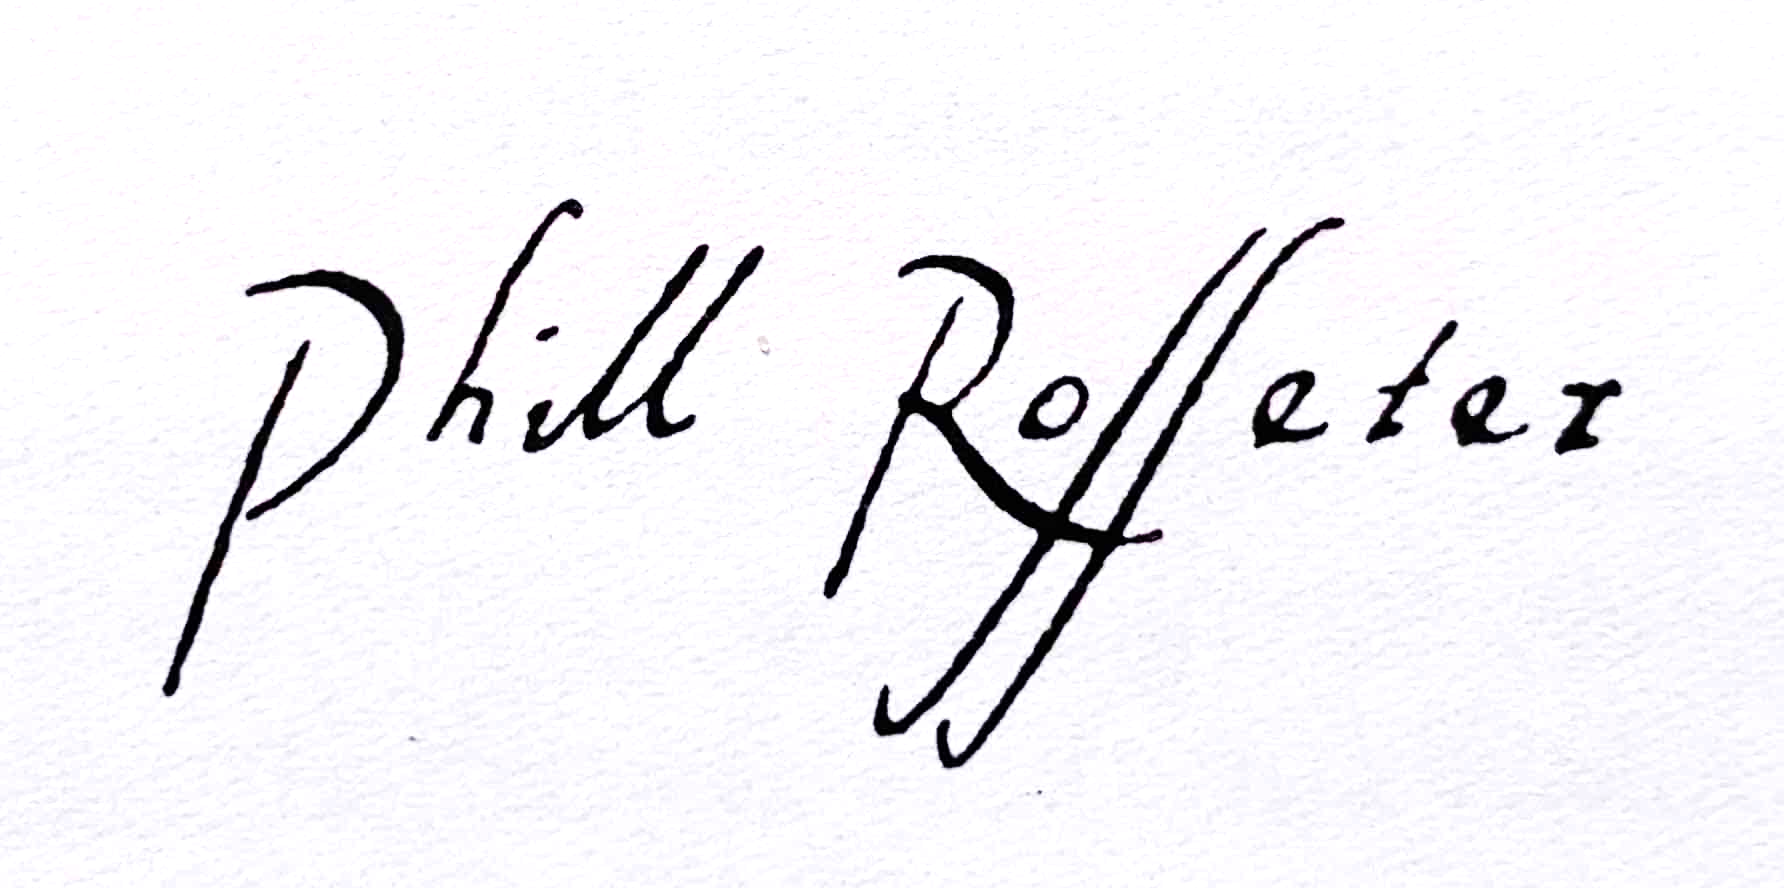 Phill Roffeter